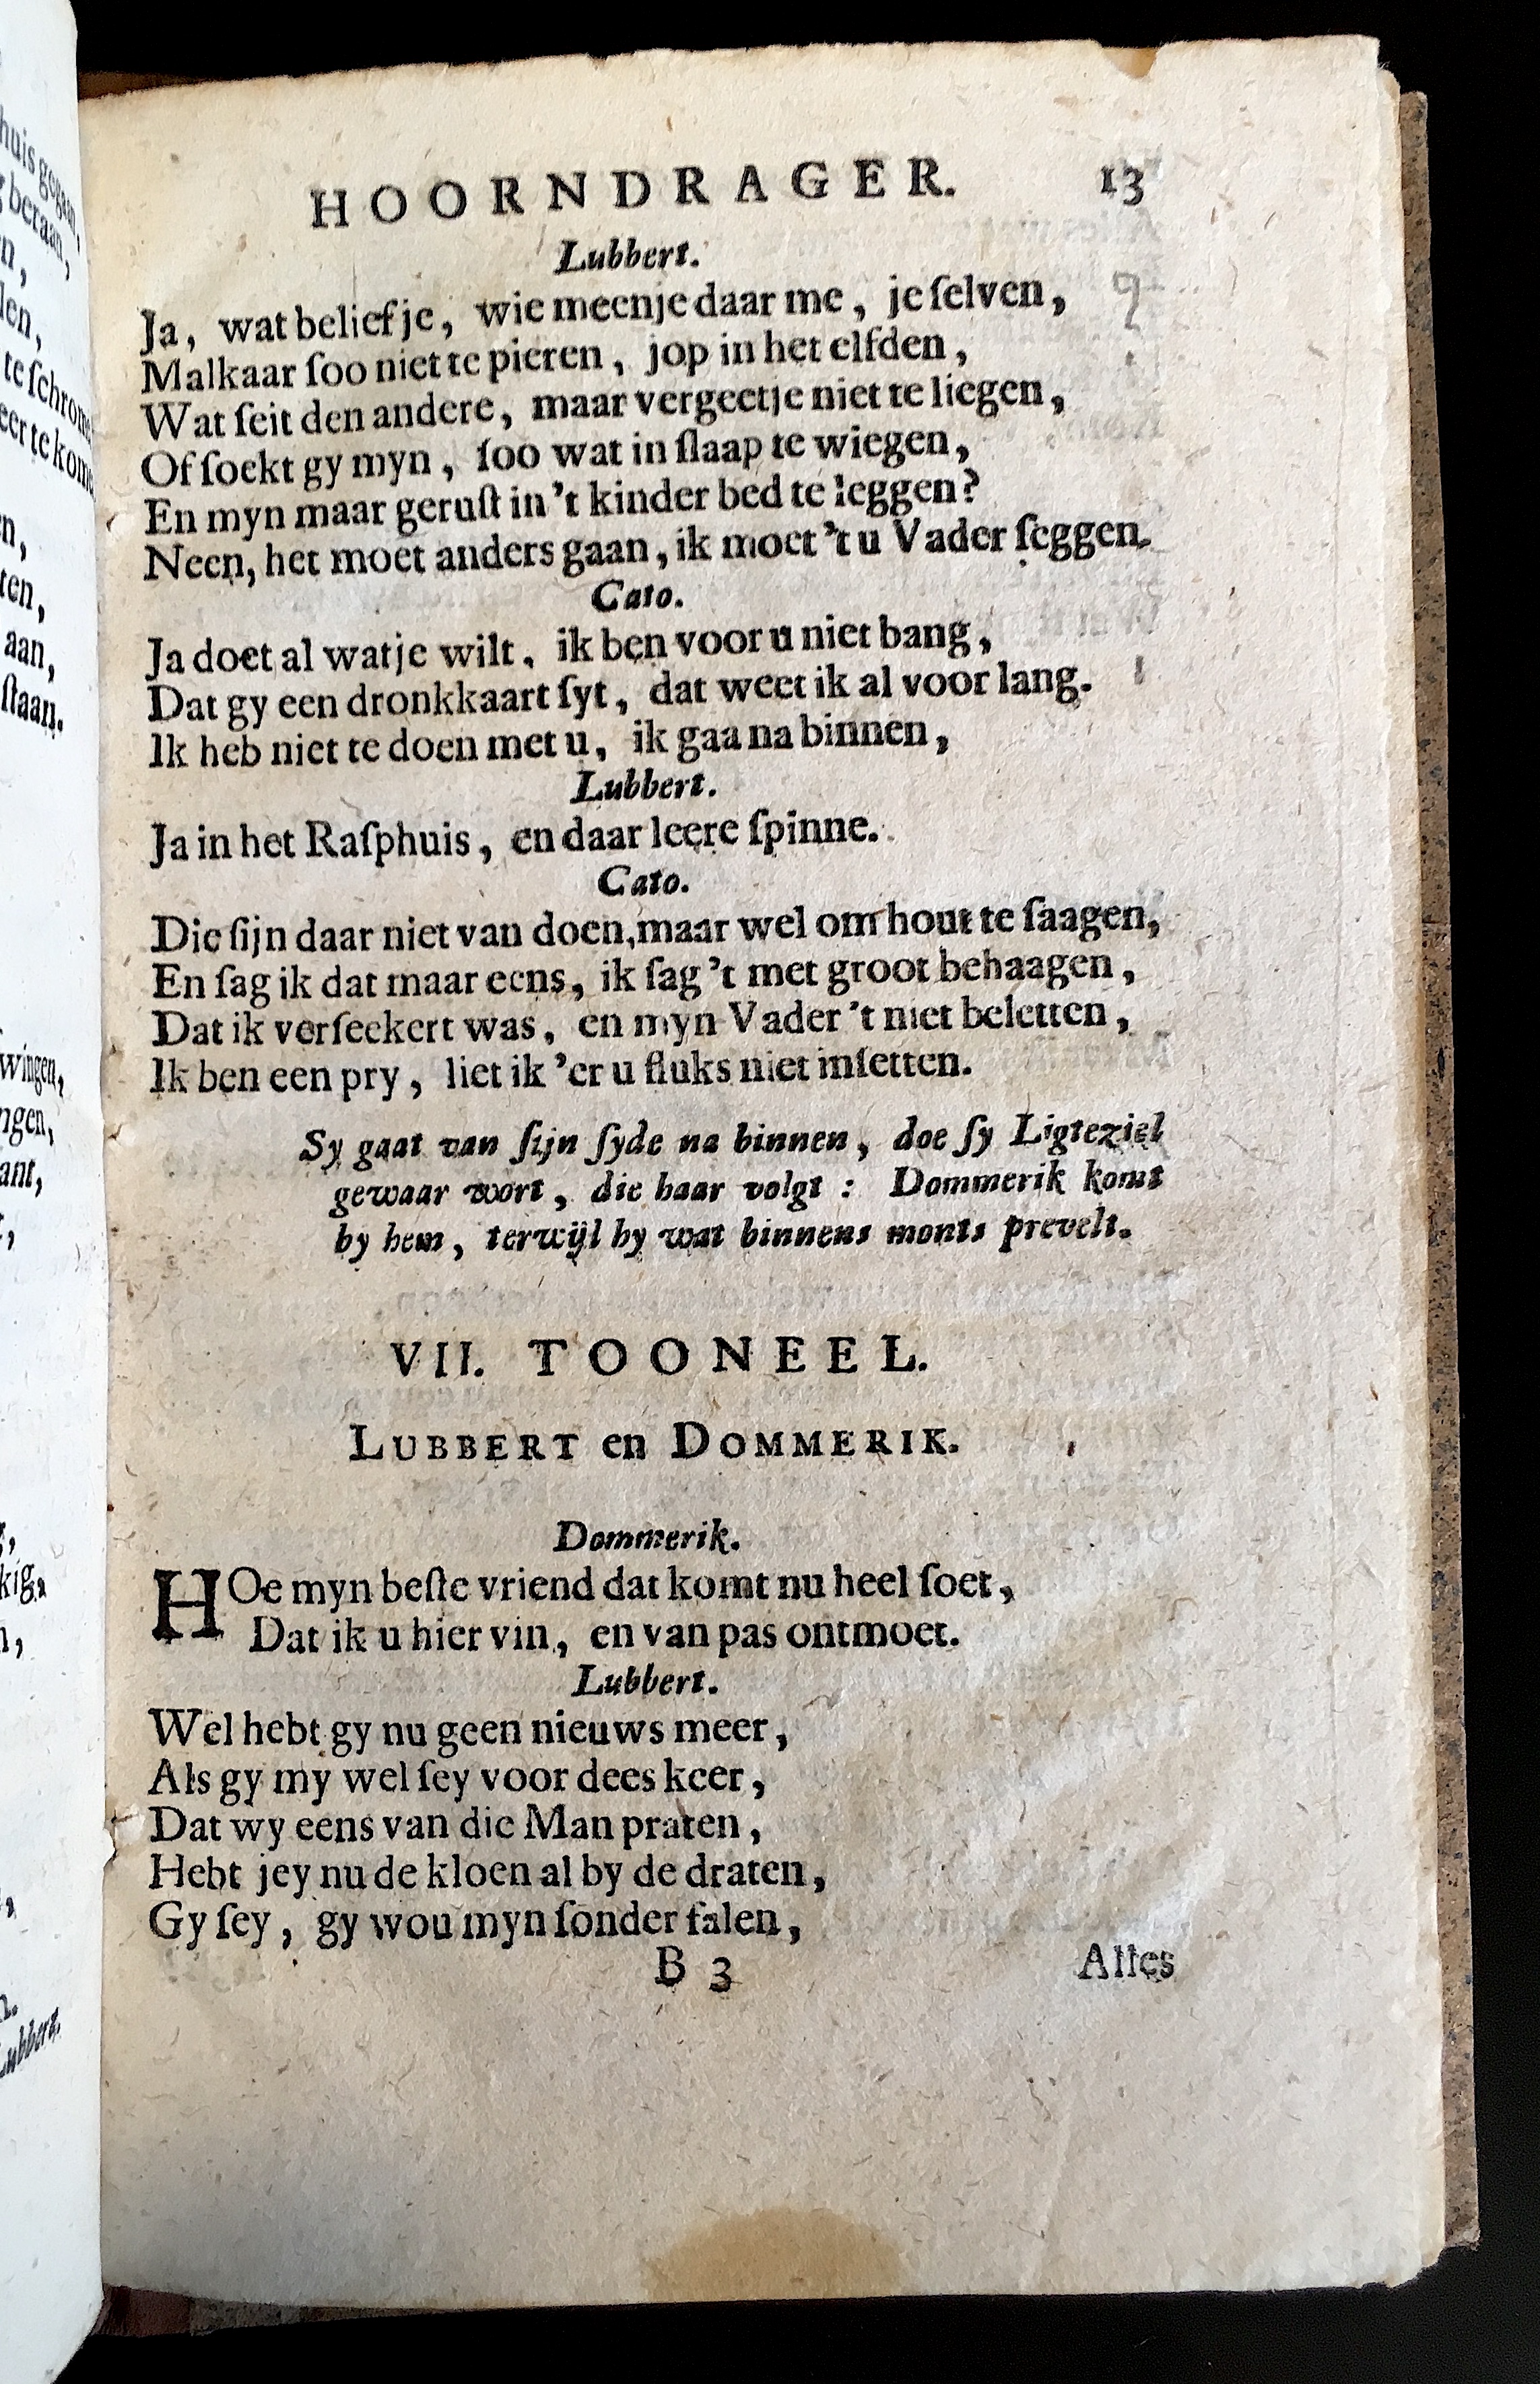 HOORNDRAGER. 13
Lubbert.
Ja, wat belief je, wie meenje daar me, je ſelven,
Malkaar ſoo niet te pieren, jop in het elfden,
Wat ſeit den andere, maar vergeetje niet te liegen,
Of ſoekt gy myn, ſoo wat in ſlaap te wiegen,
En myn maar geruſt in 't kinder bed te leggen?
Neen, het moet anders gaan, ik moet 't u Vader ſeggen.
Cato.
Ja doet al watje wilt, ik ben voor u niet bang,
Dat gy een dronkkaart ſyt, dat weet ik al voor lang.
Ik heb niet te doen met u, ik gaa na binnen,
Lubbert.
Ja in het Raſphuis, en daar leere ſpinne.
Cato.
Die ſijn daar niet van doen, maar wel om hout te ſaagen,
En ſag ik dat maar eens, ik ſag 't met groot behaagen,
Dat ik verſeekert was, en myn Vader 't niet beletten,
Ik ben een pry, liet ik 'er u fluks niet inſetten.
Sy gaat van ſijn ſyde na binnen, doe ſy Ligteziel
gewaar wort, die haar volgt: Dommerik komt
by hem, terwijl hy wat binnens monts prevelt.
VII. TOONEEL.
LUBBERT en DOMMERIK.
Dommerik.
HOe myn beſte vriend dat komt nu heel ſoet,
Dat ik u hier vin, en van pas ontmoet.
Lubbert.
Wel hebt gy nu geen nieuws meer,
Als gy my wel ſey voor dees keer,
Dat wy eens van die Man praten,
Hebt jey nu de kloen al by de draten,
Gy ſey, gy wou myn ſonder falen,
B 3 Alles